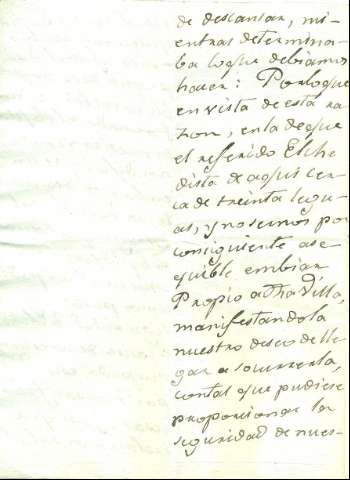 de descansar, mi-
entras determina-
ba loque debiamos
hacer: Porloque
en vista de esta ra-
zon, enla deque
el referido Elche
dista de aqui cer-
ca de treinta legu-
as, y nosernos por
consiguiente ase-
quible embiar
Propio a dha Villa,
manifestandola
nuestro deseo delle-
gar a socorrerla,
contal que pudiese
proporcionar la
seguridad de nues-